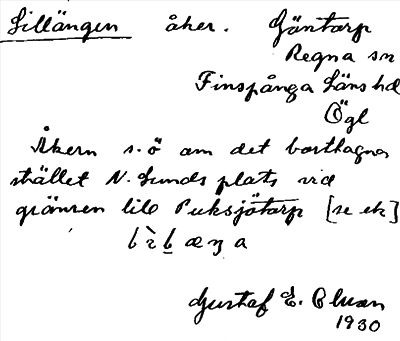 Lillängen åker. Gäntorp
Regna sn
Finspånga läns hd
Ögl
Åkern s.ö om det borttagna
stället N. Lunds plats vid
gränsen till Puksjötorp [se ek]
Gustaf E.
1930